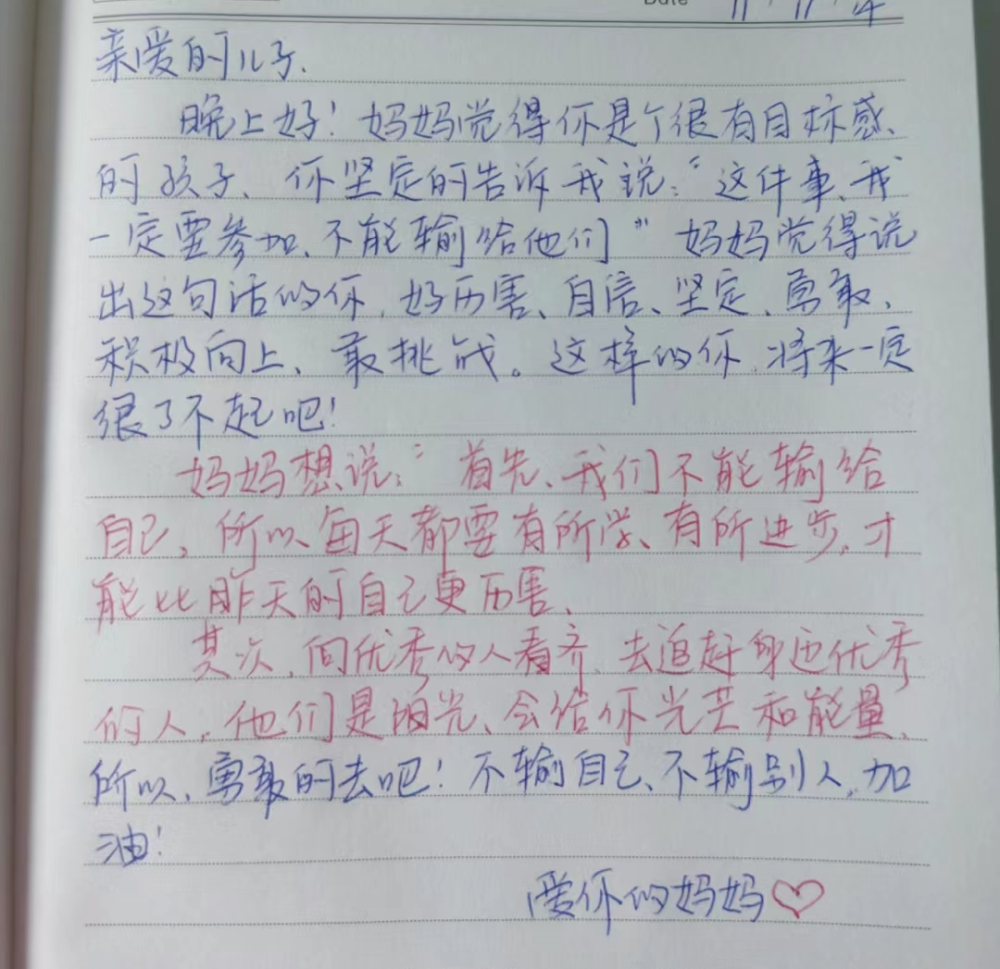 Date
亲爱的儿子.
晚上好！妈妈觉得你是个很有目标感、
的孩子、你坚定的告诉我说：“这件事、我
一定要参加、不能输给他们” 妈妈觉得说
出这句话的你,好厉害、自信、坚定、勇敢、
积极向上、敢挑战。这样的你,将来一定
很了不起吧！
妈妈想说：“首先、我们不能输给
自己,所以、每天都要有所学、有所进步,才
能比昨天的自己更厉害、
其次,向优秀的人看齐,去追赶身边优秀
的人,他们是阳光、会给你光芒和能量、
所以、勇敢的去吧！不输自己、不输别人,加
油！
爱你的妈妈